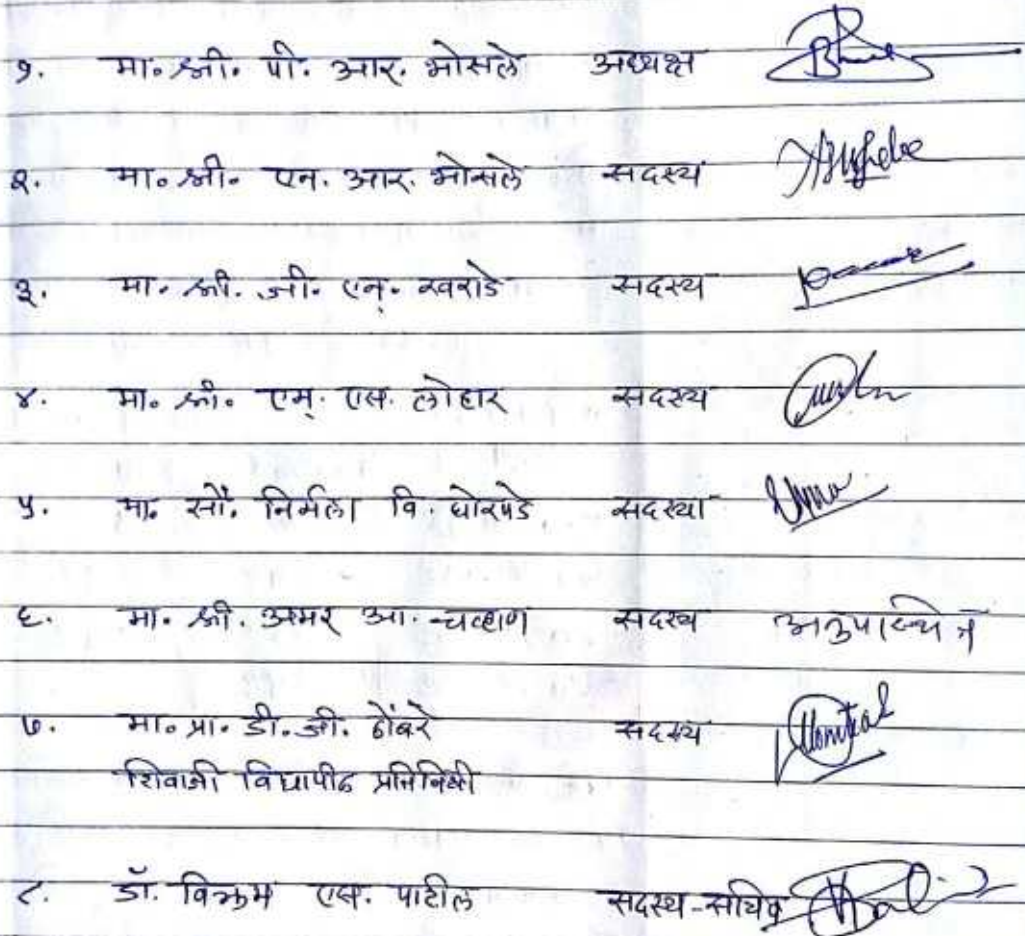 १. मा. श्री. पी. आर. भोसले अध्यक्ष
२. मा. श्री. एन. आर. भोसले सदस्य
३. मा. श्री. जी. एन्. खराडे सदस्य
४. मा. श्री. एम्. एस. लोहार सदस्य
५. मा. सौ. निर्मला वि. घोरपडे सदस्या
६. मा. श्री. अमर आ. चव्हाण सदस्य अनुपस्थित
७. मा. प्रा. डी. जी. ठोंबरे सदस्य
शिवाजी विद्यापीठ प्रतिनिधी
८. डॉ. विक्रम एस. पाटील सदस्य-सचिव